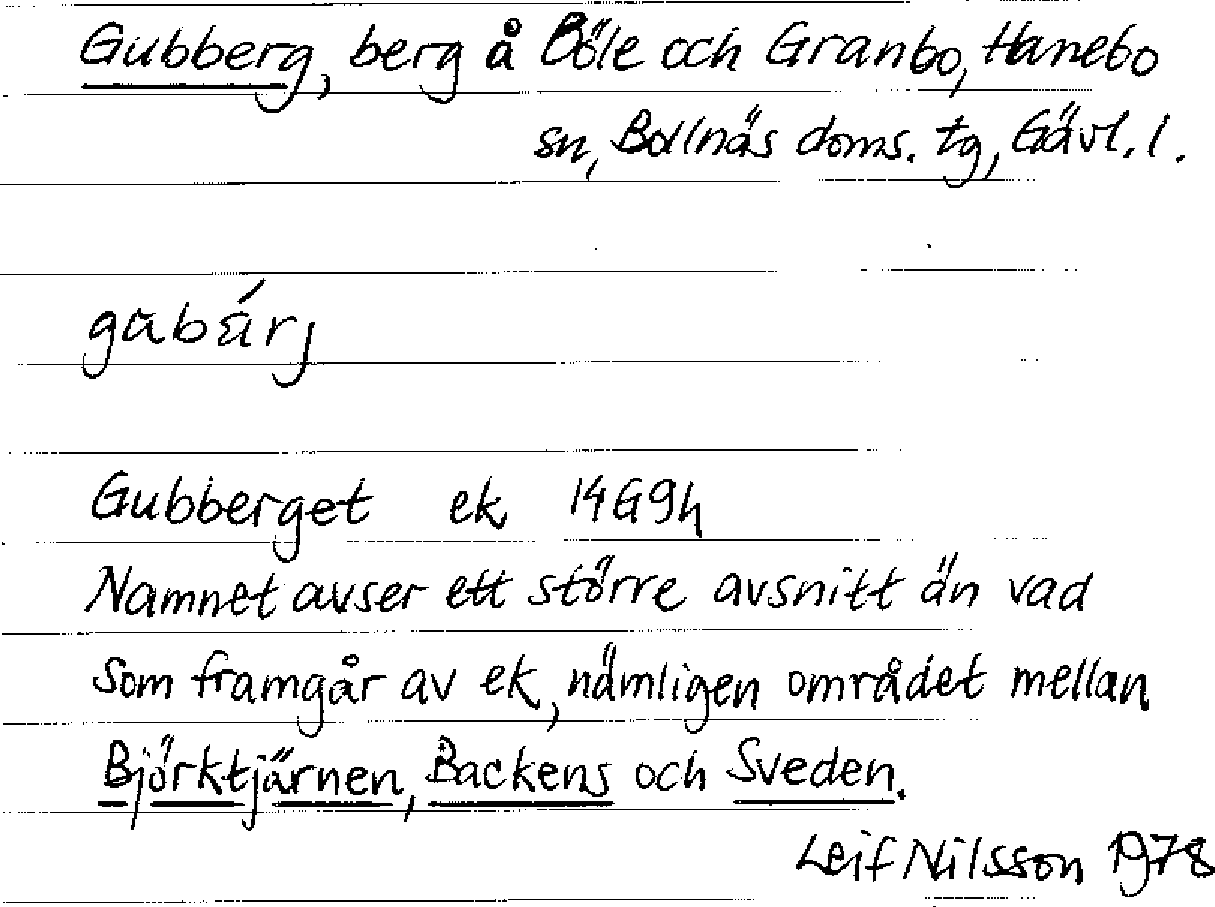 Gubberg, berg å Böle och Granbo, Hanebo
sn, Bollnäs doms. tg, Gävl. l.
gubárj
Gubberget ek 14G9h
Namnet avser ett större avsnitt än vad
som framgår av ek, nämligen området mellan
Björktjärnen, Backens och Sveden.
Leif Nilsson 1978